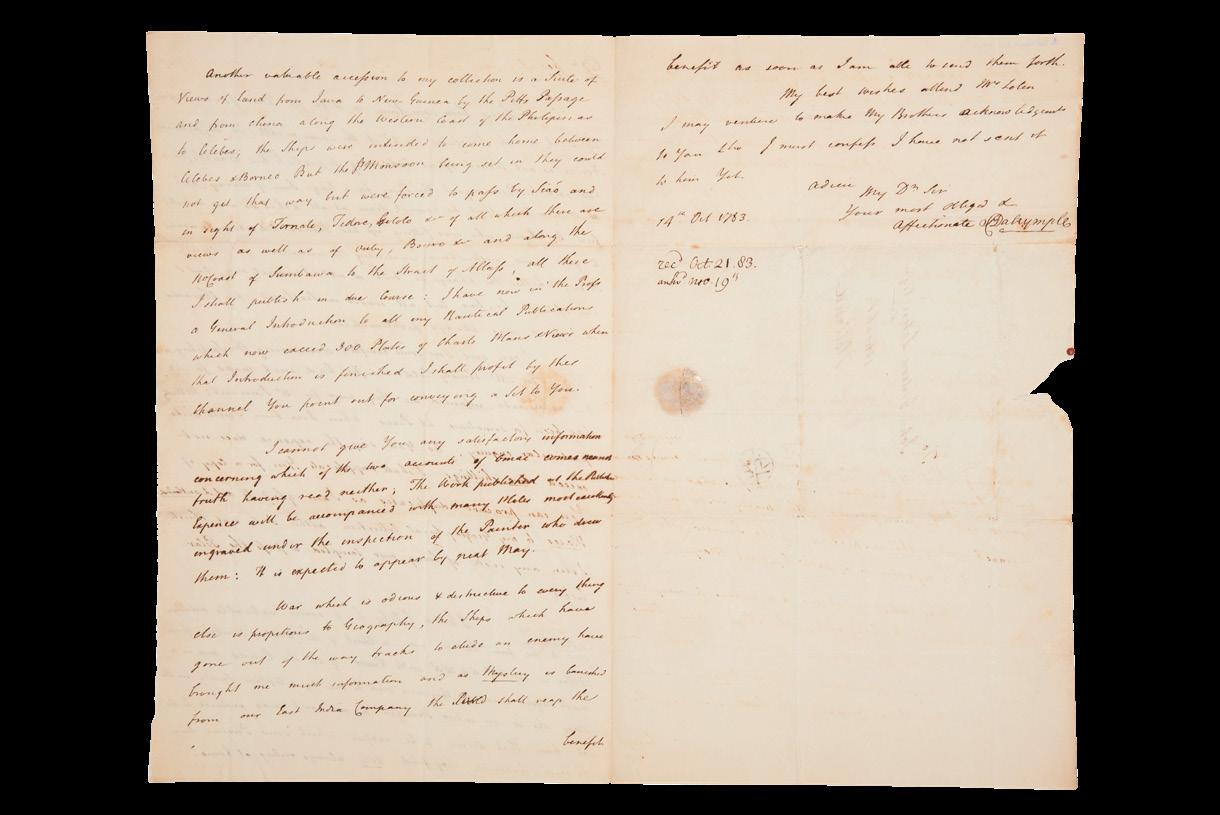 Another valuable accession to my collection is a Suite of
Views of Land from Java to New Guinea by the Pitts Passage
and from China along the Western Coast of the Philipinas
to Celebes; the Ships were intended to come home between
Celebes & Borneo But the Monsoon being set in they could
not get that way but were forced to pass by Siáo and
in sight of Ternate, Tidore, Gilolo &c of all which there are
views as well as of Ouby, Bouro &c and along the
NoCoast of Sumbawa to the Strait of Allass, all these
I shall publish in due Course: I have now in the Press
a General Introduction to all my Nautical Publications
which now exceed 300 Plates of Charts Plans & Views when
that Introduction is finished I shall profit by the
Channel You point out for conveying a Set to You.
I cannot give You any satisfactory information
concerning which of the two accounts of Omai comes nearest
truth having read neither; The Work published at the Publick
Expence will be accompanied with many Plates most excellently
engraved under the inspection of the Painter who drew
them: It is expected to appear by next May.
War which is odious & destructive to every thing
else is propitious to Geography, the Ships which have
gone out of the way tracks to elude an enemy have
brought me much information and as Mystery is banished
from our East India Company the World shall reap the
benefit
benefit as soon as I am able to send them forth.
My best wishes attend Mrs Loten
I may venture to make My Brothers acknowledgments
to You tho I must confess I have not sent it
to him Yet.
adieu My Dr Sir
Your most obliged &
affectionate ADalrymple
14th Oct 1783.
recd Oct 21. 83.
answd nov. 19th